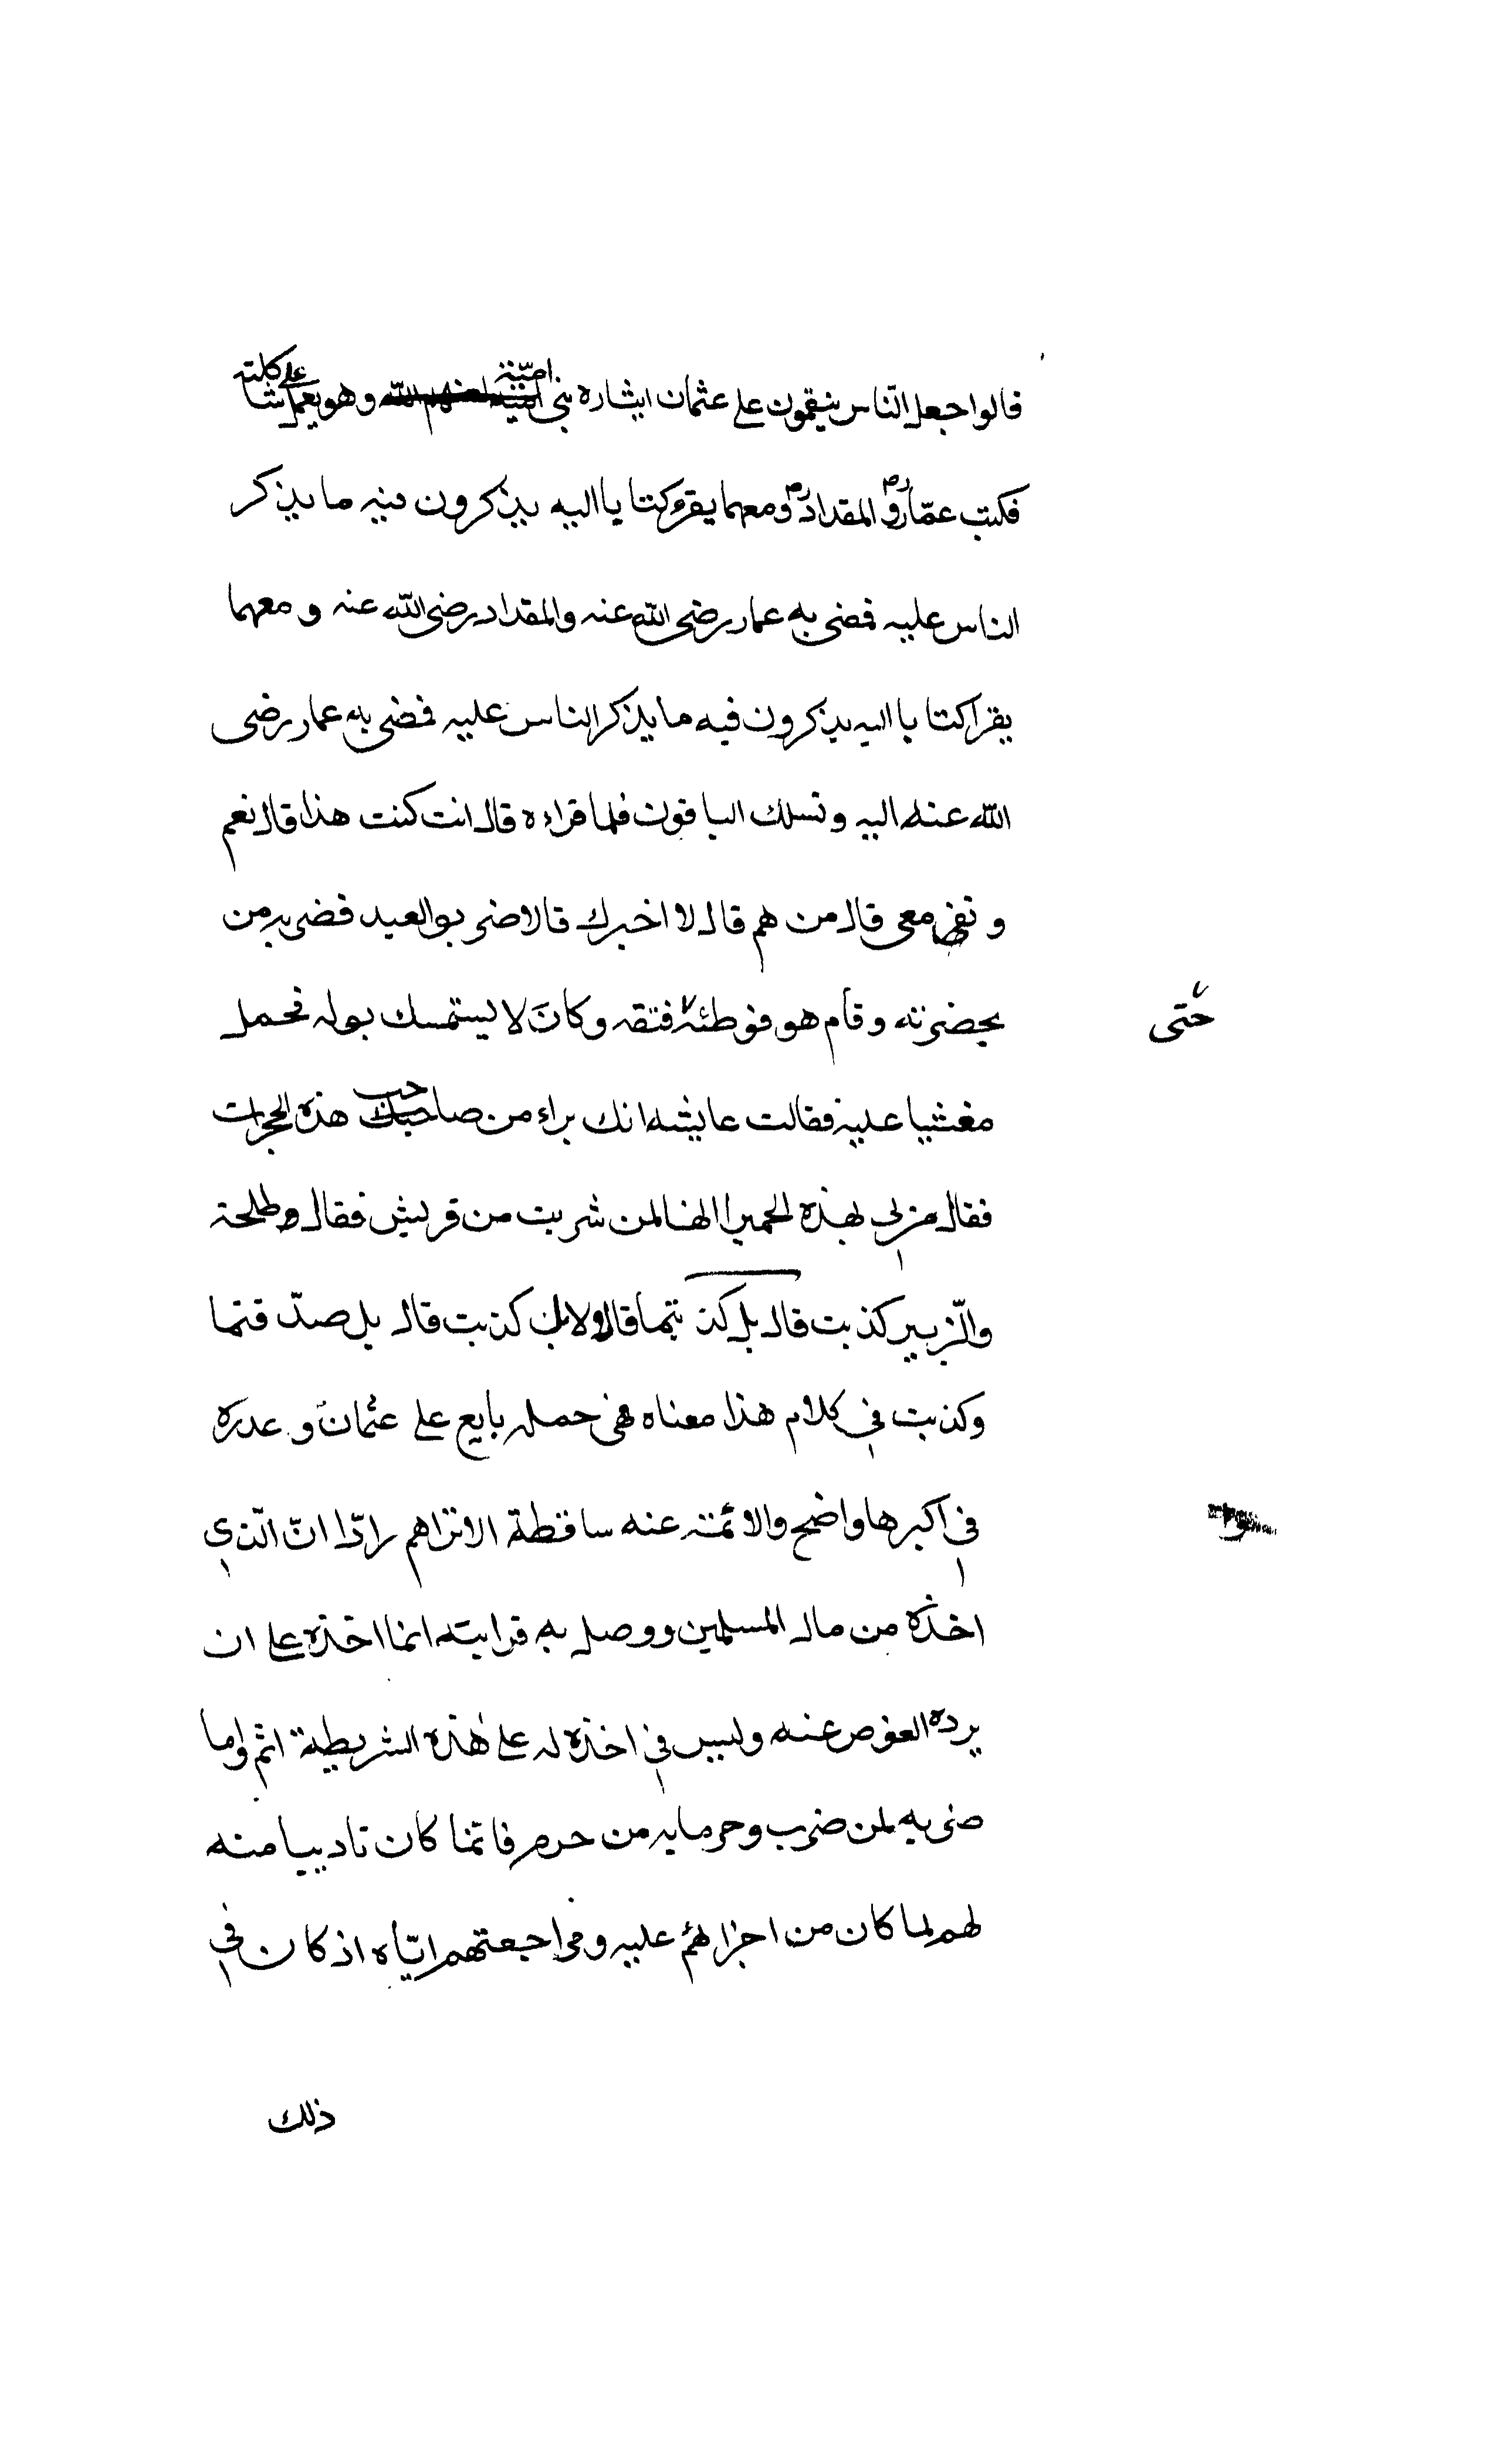 قالوا جعل الناس ينقمون على عثمان ايثاره بني اميّة وهو على كلته
فكتب عمّار رض و المقداد رض ومعهما يقرء كتا با اليه يذكرون فيه ما يذكر
الناس عليه فمضى به عمار رضى الله عنه والمقداد رضى الله عنه و معهما
يقرا كتا با اليه يذكرون فيه ما يذكر الناس عليه فمضى به عمار رضى
الله عنه اليه و تسلك الباقون فلما قراءه قال انت كنت هذا قال نعم
و نفر معى قال من هم قال لا اخبرك قال اضربو العبد فضربه من
بحضرته و قام هو فوطئه فتقه و كان لا يستمسك بوله فحمل
حتى
مغشيا عليه فقالت عايشه انك براء من صاحب هذه الحجرات
فقال من لى بهذه الحميرا انها لمن شربت من قريش فقال طلحة
والزبير كذبت قال بل كذ بتما قالا ولا بل كذبت قال بل صدّ قتما
وكذبت في كلام هذا معناه هى حمله بايع على عثمان و عدره
في اكبرها واضح والائمة عنه ساقطة الا تراهم رادّا انّ الّذي
اخذه من مال المسلمين ووصل به قرابته انما اخذه على ان
يرده العوض عنه وليس في اخذه له على هذه الشريطة اثم واما
ضربه لمن ضرب و حرمايه من حرم فانما كان تاديبا منه
لهم لما كان من اجرائهم عليه و مراجعتهم ايّاه اذ كان في
ذلك